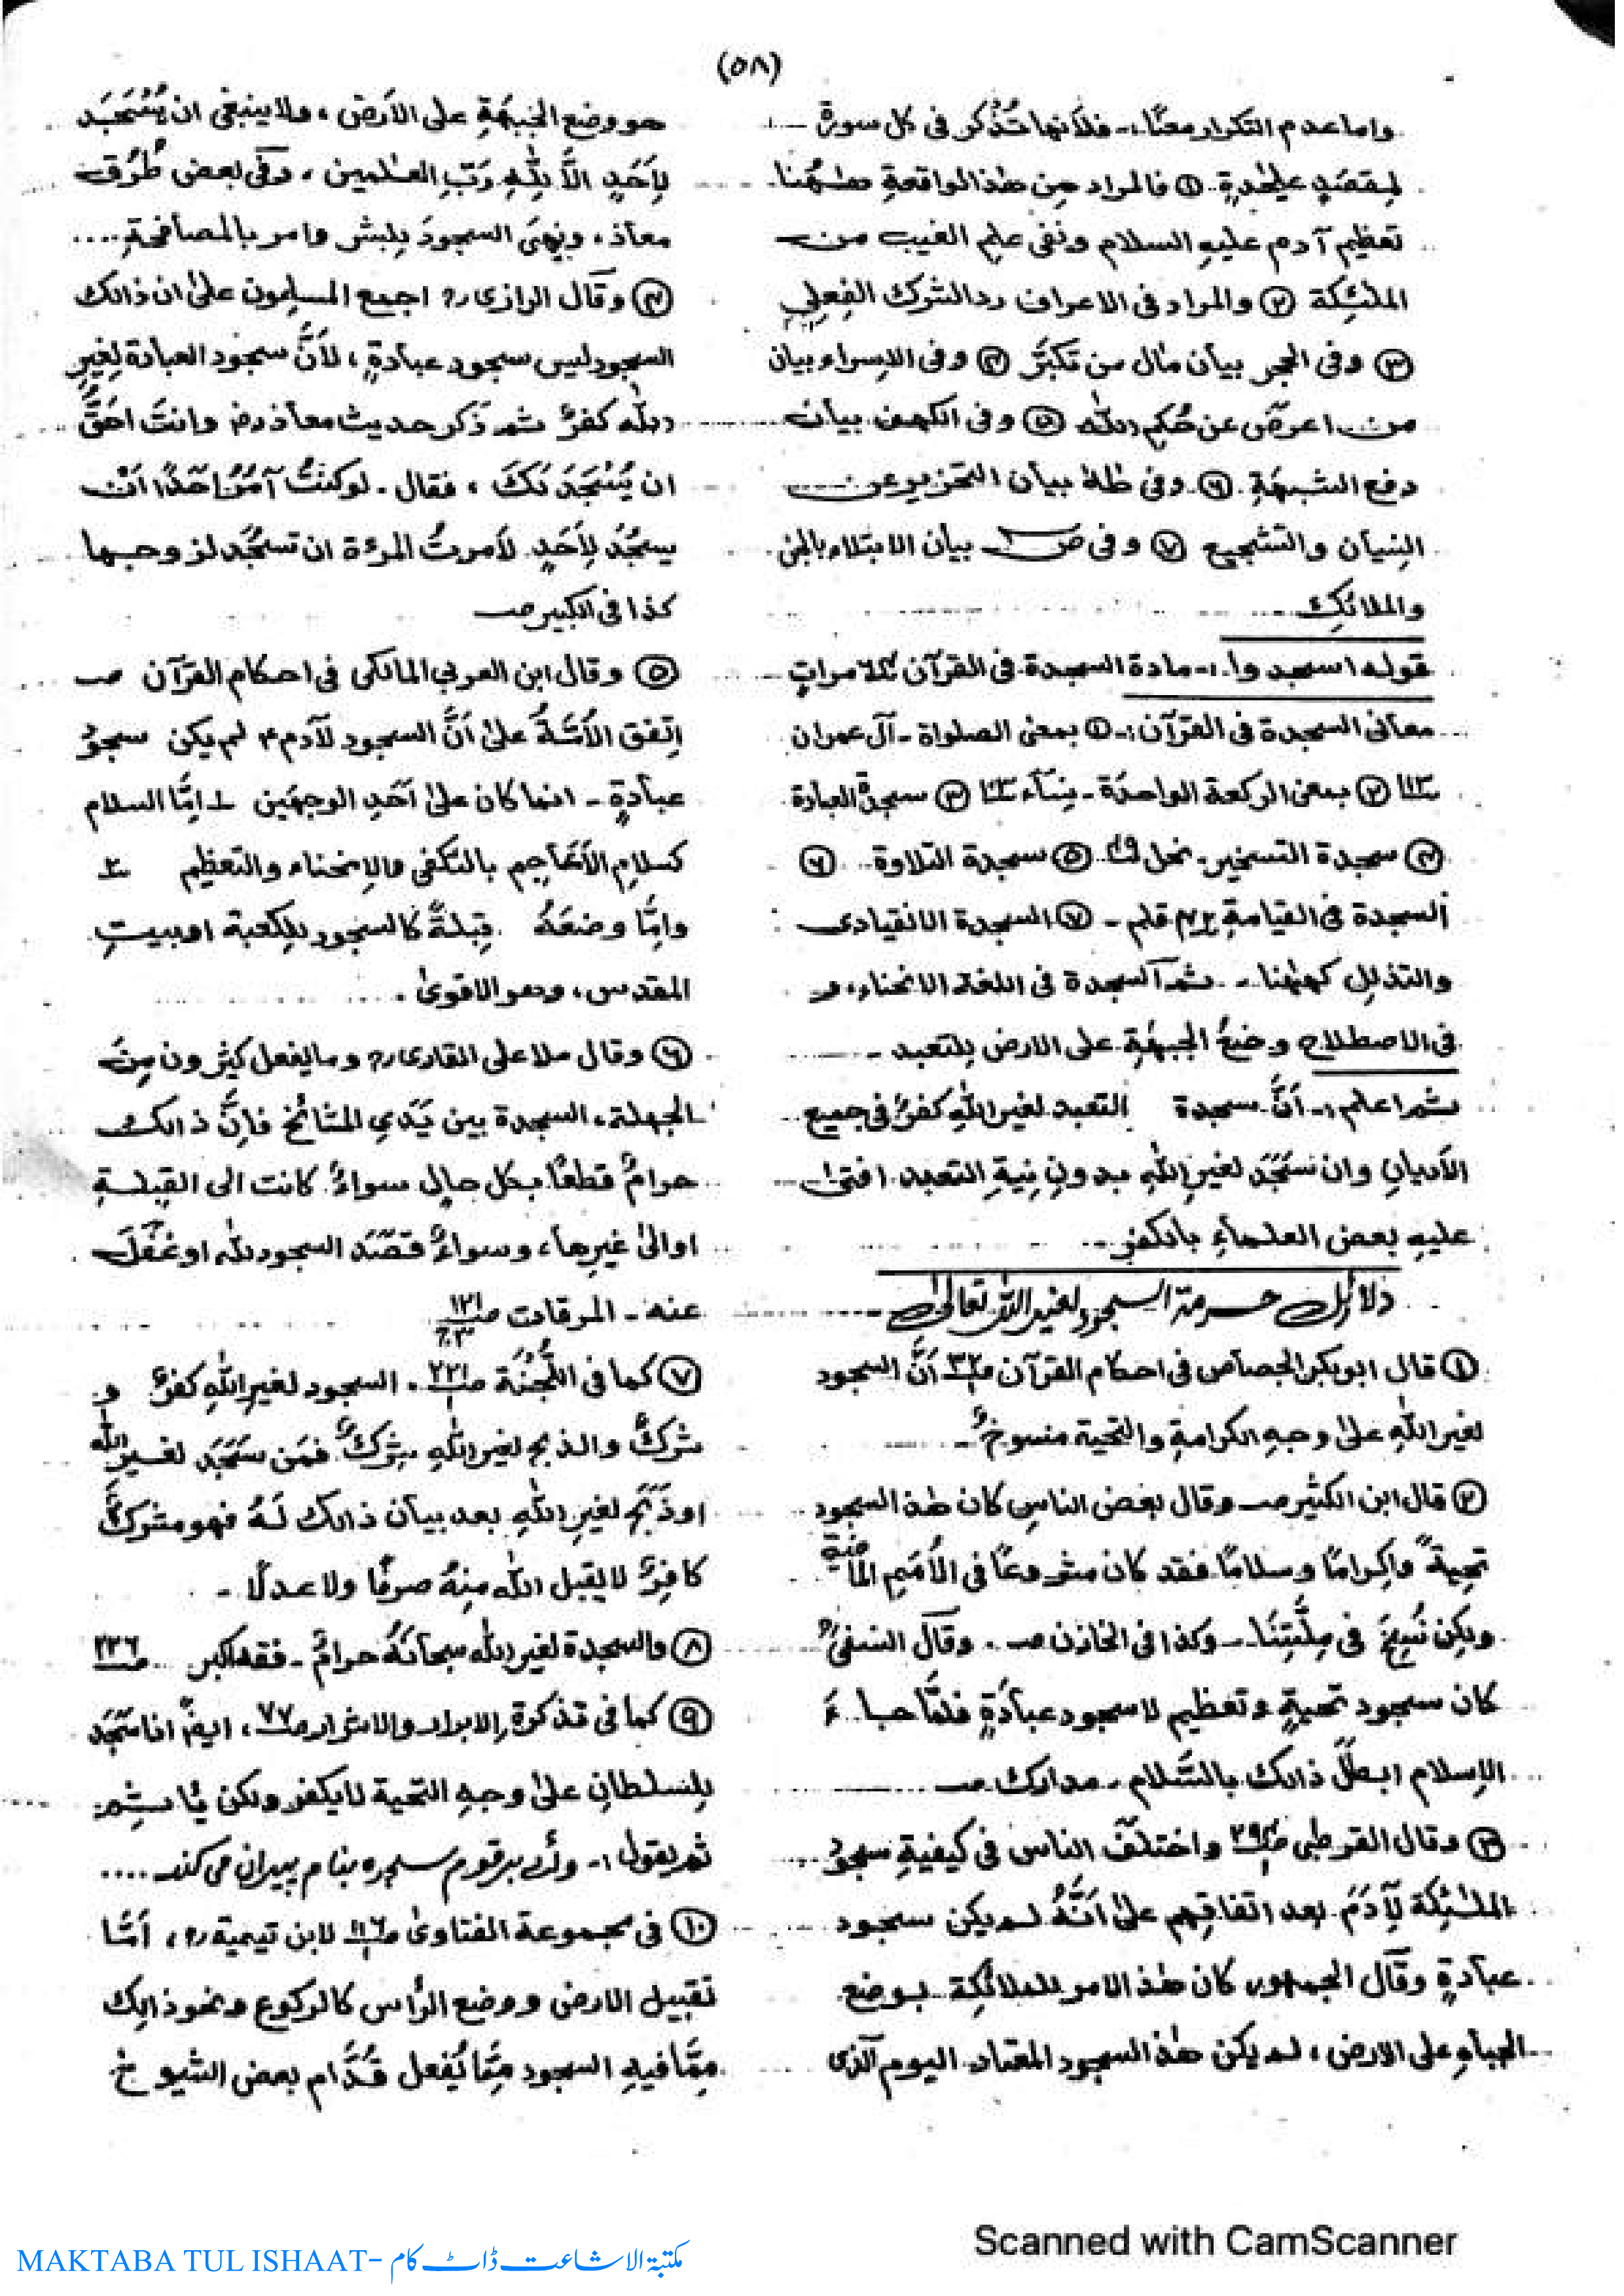 (٥٨)
واما عدم التكرار معنًا:- فلأنها تُذكر فى كل سورة
لمقصَدٍ عليحٰدةٍ. ① فالمراد من هٰذا الواقعةِ هٰهُنا
تعظيم آدم عليهِ السلام ونفى علم الغيب من
الملٰئِكة ② والمراد فى الاعراف رد الشرك الفِعلِى
③ وفى الحجر بيان مٰال من تكبَّر ④ وفى الإسراء بيان
من اعرض عن حُكمِ الله ⑤ وفى الكهف بيان
دفع الشبهَةِ. ⑥ وفى طٰهٰ بيان التحزير عن
النِسيان والتشجيع ⑦ وفى صٓ بيان الابتلاء بالجن
والملائك
قوله اسجدوا:- مادة السجدة فى القرآن مراتٍ
معانى السجدة فى القرآن:- ① بمعنى الصلواة - آل عمران
② بمعنى الركعة الواحدَة - نسآء ③ سجدة العبادة
④ سجدة التسخير. نحل ⑤ سجدة التلاوة ⑥
السجدة فى القيامةِ قلم - ⑦ السجدة الانقيادى
والتذلل كهٰهنا - ثم السجدة فى اللغة الانحناء، و
فى الاصطلاح وضعُ الجبهَةِ على الارض للتعبد -
ثم اعلم:- أنَّ سجدة التعبد لغير اللهِ كفرٌ فى جميع
الأديانِ وان سَجَدَ لغيرِ اللهِ بدونِ نيةِ التعبد. افتىٰ
عليهِ بعض العلماءِ بالكفرِ -
دلائل حرمة السجود لغير الله تعالىٰ
① قال ابوبكر الجصاص فى احكام القرآن صـ٣٢ أنَّ السجود
لغير اللهِ علىٰ وجهِ الكرامةِ والتحية منسوخٌ -
② قال ابن الكثير صـ وقال بعض الناسِ كان هٰذا السجود
تحيةً واِكرامًا وسلامًا فقد كان مشروعًا فى الأُمَمِ الماضية
ولكن نُسِخَ فى مِلَّتِنَا - وكذا فى الخازن صـ . وقال النسفىؒ
كان سجود تحيةٍ وتعظيم لا سجود عبادَةٍ فلمَّا جاءَ
الإسلام ابطلَ ذالك بالسَّلام - مدارك صـ
③ وقال القرطبى صـ٢٩٣ واختلف الناس فى كيفيةِ سجودِ
الملٰئِكة لآدَمَ بعد اتفاقِهِم علىٰ أنَّهُ لم يكن سجود
عبادةٍ وقال الجمهور كان هٰذا الامر للملائكة بوضع
الجباهِ على الارض، لم يكن هٰذا السجود المعتاد اليوم الذى
هو وضع الجَبهَةِ على الأرض، ولا ينبغى ان يُسْجَد
لِأَحَدٍ الاَّ لِلّٰهِ رَبِّ العٰلمين، وفى بعض طُرُق
معاذ، ونهىٰ السجودَ لِلبشر وامر بالمصافحةِ....
④ وقال الرازىؒ اجمع المسلمون علىٰ ان ذالك
السجود ليس سجود عبادةٍ، لأنَّ سجود العبادة لِغيرِ
اللهِ كفرٌ ثم ذكر حديث معاذرض وانتَ احَقُّ
ان يُسْجَدَ لَكَ، فقال. لو كنتُ آمرُ احدًا انْ
يسجُدُ لِأَحَدٍ لأمرتُ المرءة ان تسجُدَ لزوجها
كذا فى الكبير صـ
⑤ وقال ابن العربي المالكى فى احكام القرآن صـ
اِتفق الأُمَّةُ علىٰ أنَّ السجود لآدم لم يكن سجودُ
عبادةٍ - انما كان علىٰ أحَدِ الوجهَين ١ اِمَّا السلام
كسلام الأعَاجِم بالتكفى والاِنحناء والتعظيم ٢
واِمَّا وضعَهُ قِبلةً كالسجود للكعبة او بيتِ
المقدس، وهو الاقوىٰ.
⑥ وقال ملا على القارىؒ وما يفعل كثيرون مِن
الجهلة، السجدة بين يَدَىِ المشائخ فاِنَّ ذالك
حرامٌ قطعًا بكل حالٍ سواءٌ كانت الى القبلةِ
او الىٰ غيرها، وسواءٌ قَصَدَ السجود لله او غَفَلَ
عنه - المرقات صـ١٢١
⑦ كما فى اللُّجْنَة صـ٢٢١. السجود لغير اللهِ كفرٌ و
شركٌ والذبح لغير اللهِ شِركٌ فمَن سَجَدَ لغير الله
اوذَبَحَ لغير اللهِ بعد بيان ذالك لَهُ فهو مشركٌ
كافِرٌ لا يقبل الله مِنهُ صرفًا ولا عدلًا -
⑧ والسجدة لغير الله سبحانَهُ حرامٌ - فقه اكبر صـ٢٣٦
⑨ كما فى تذكرة الابرار والاشرار صـ٧٧، ايضٌ اذا سَجَدَ
لِلسلطانِ علىٰ وجهِ التحية لا يكفر ولكن
ثم يقول:- وائے بر قوم سجده بنام پيران مى كند ....
⑩ فى مجموعة الفتاوىٰ لابن تيميةؒ، أمَّا
تقبيل الارض ووضع الرأس كالركوع ونحو ذالك
مِمَّا فيهِ السجود مِمَّا يُفعل قُدَّام بعض الشيوخِ
Scanned with CamScanner
MAKTABA TUL ISHAAT- مكتبة الاشاعت ڈاٹ کام